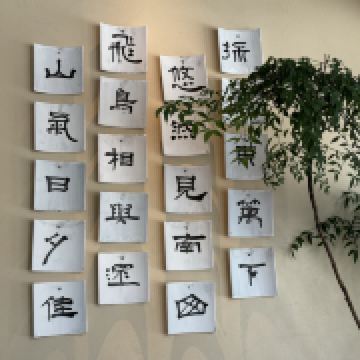 採下
悠然見南
飛鳥相與還
山氣日夕佳